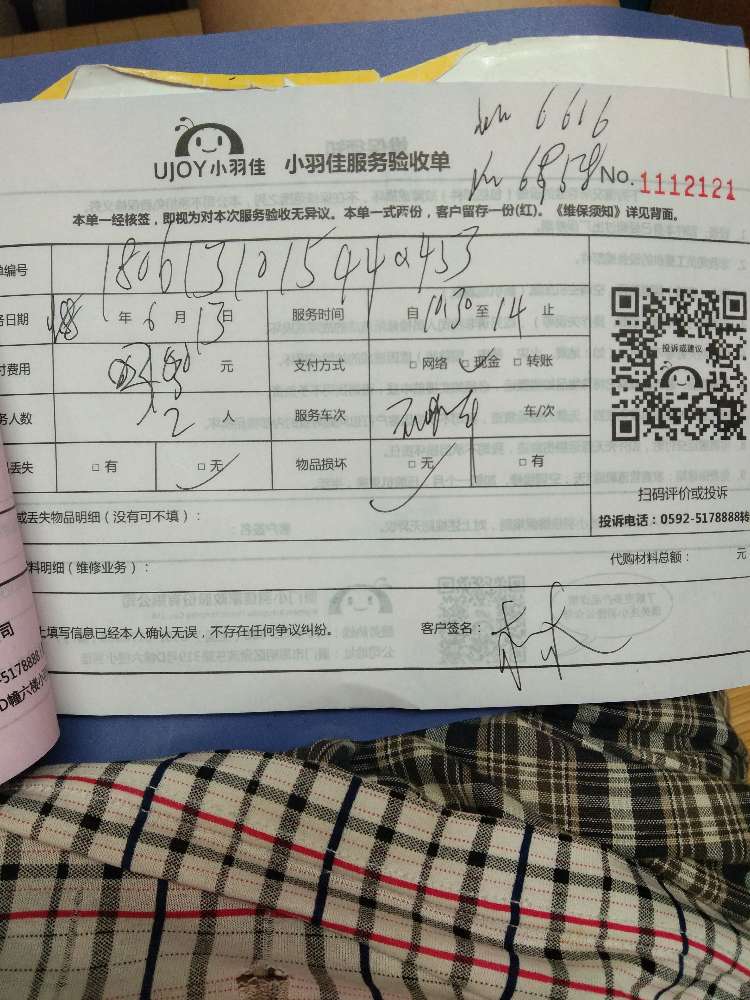 6616
6858
UJOY小羽佳 小羽佳服务验收单 No.1112121
本单一经核签，即视为对本次服务验收无异议。本单一式两份，客户留存一份(红)。《维保须知》详见背面。
单编号
务日期 18 年 6 月 13 日 服务时间 自 10:30 至 14 止
付费用 元 支付方式 □ 网络 □ 现金 □ 转账
务人数 2 人 服务车次 车/次
丢失 □ 有 □ 无 物品损坏 □ 无 □ 有
投诉或建议
扫码评价或投诉
投诉电话：0592-5178888转
或丢失物品明细（没有可不填）：
料明细（维修业务）： 代购材料总额： 元
上填写信息已经本人确认无误，不存在任何争议纠纷。 客户签名：
司
-5178888
D幢六楼小